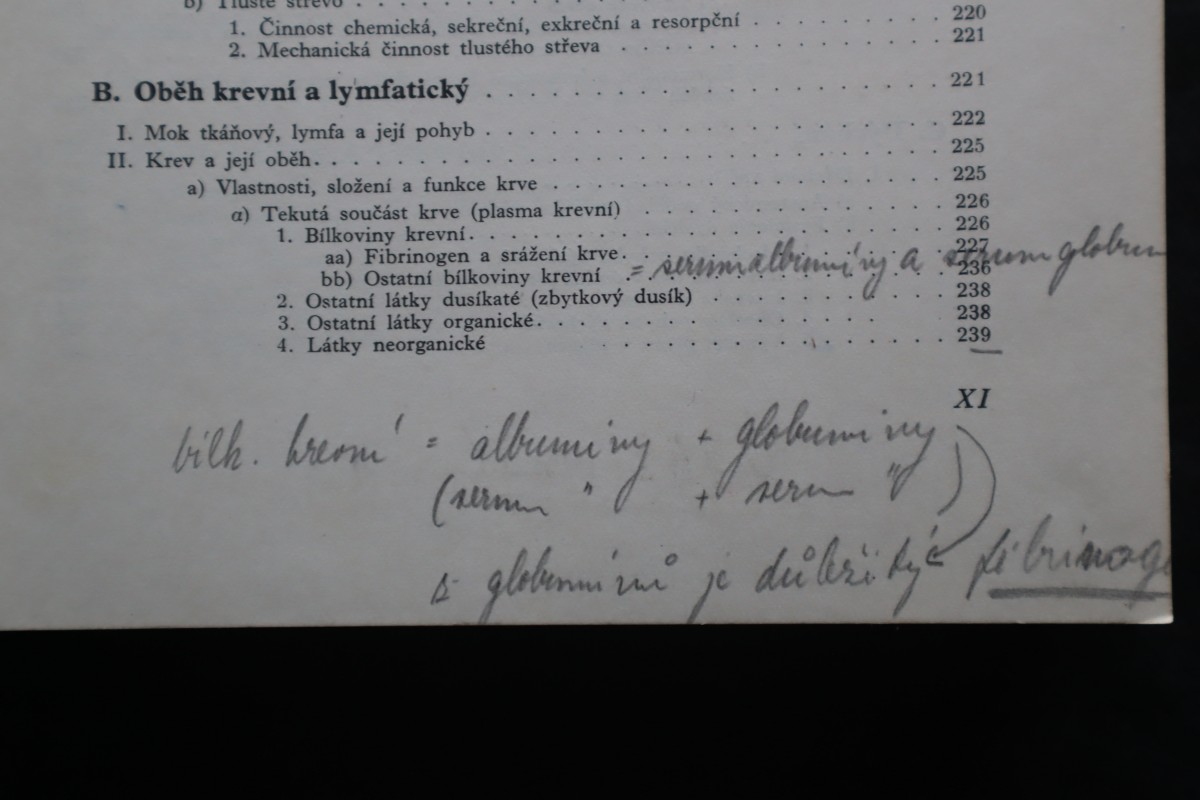 b) Tlusté střevo . . . . . . . . . . . . . . . . . .
1. Činnost chemická, sekreční, exkreční a resorpční . . . . . . . . . 220
2. Mechanická činnost tlustého střeva . . . . . . . . . . . . . . 221
B. Oběh krevní a lymfatický . . . . . . . . . . . . . . . . . . . 221
I. Mok tkáňový, lymfa a její pohyb . . . . . . . . . . . . . . . . . . 222
II. Krev a její oběh. . . . . . . . . . . . . . . . . . . . . . . . . 225
a) Vlastnosti, složení a funkce krve . . . . . . . . . . . . . . . . 225
α) Tekutá součást krve (plasma krevní) . . . . . . . . . . . . . 226
1. Bílkoviny krevní. . . . . . . . . . . . . . . . . . . . 226
aa) Fibrinogen a srážení krve. . . . . . . . . . . . . . 227
bb) Ostatní bílkoviny krevní = serumalbuminy a serumglobum 236
2. Ostatní látky dusíkaté (zbytkový dusík) . . . . . . . . . . 238
3. Ostatní látky organické. . . . . . . . . . . . . . 238
4. Látky neorganické . . . . . . . . . . . . . . . 239
XI
bílk. krevní = albuminy + globuminy
(serum " + serum ")
z globuminů je důležitý fibrinog